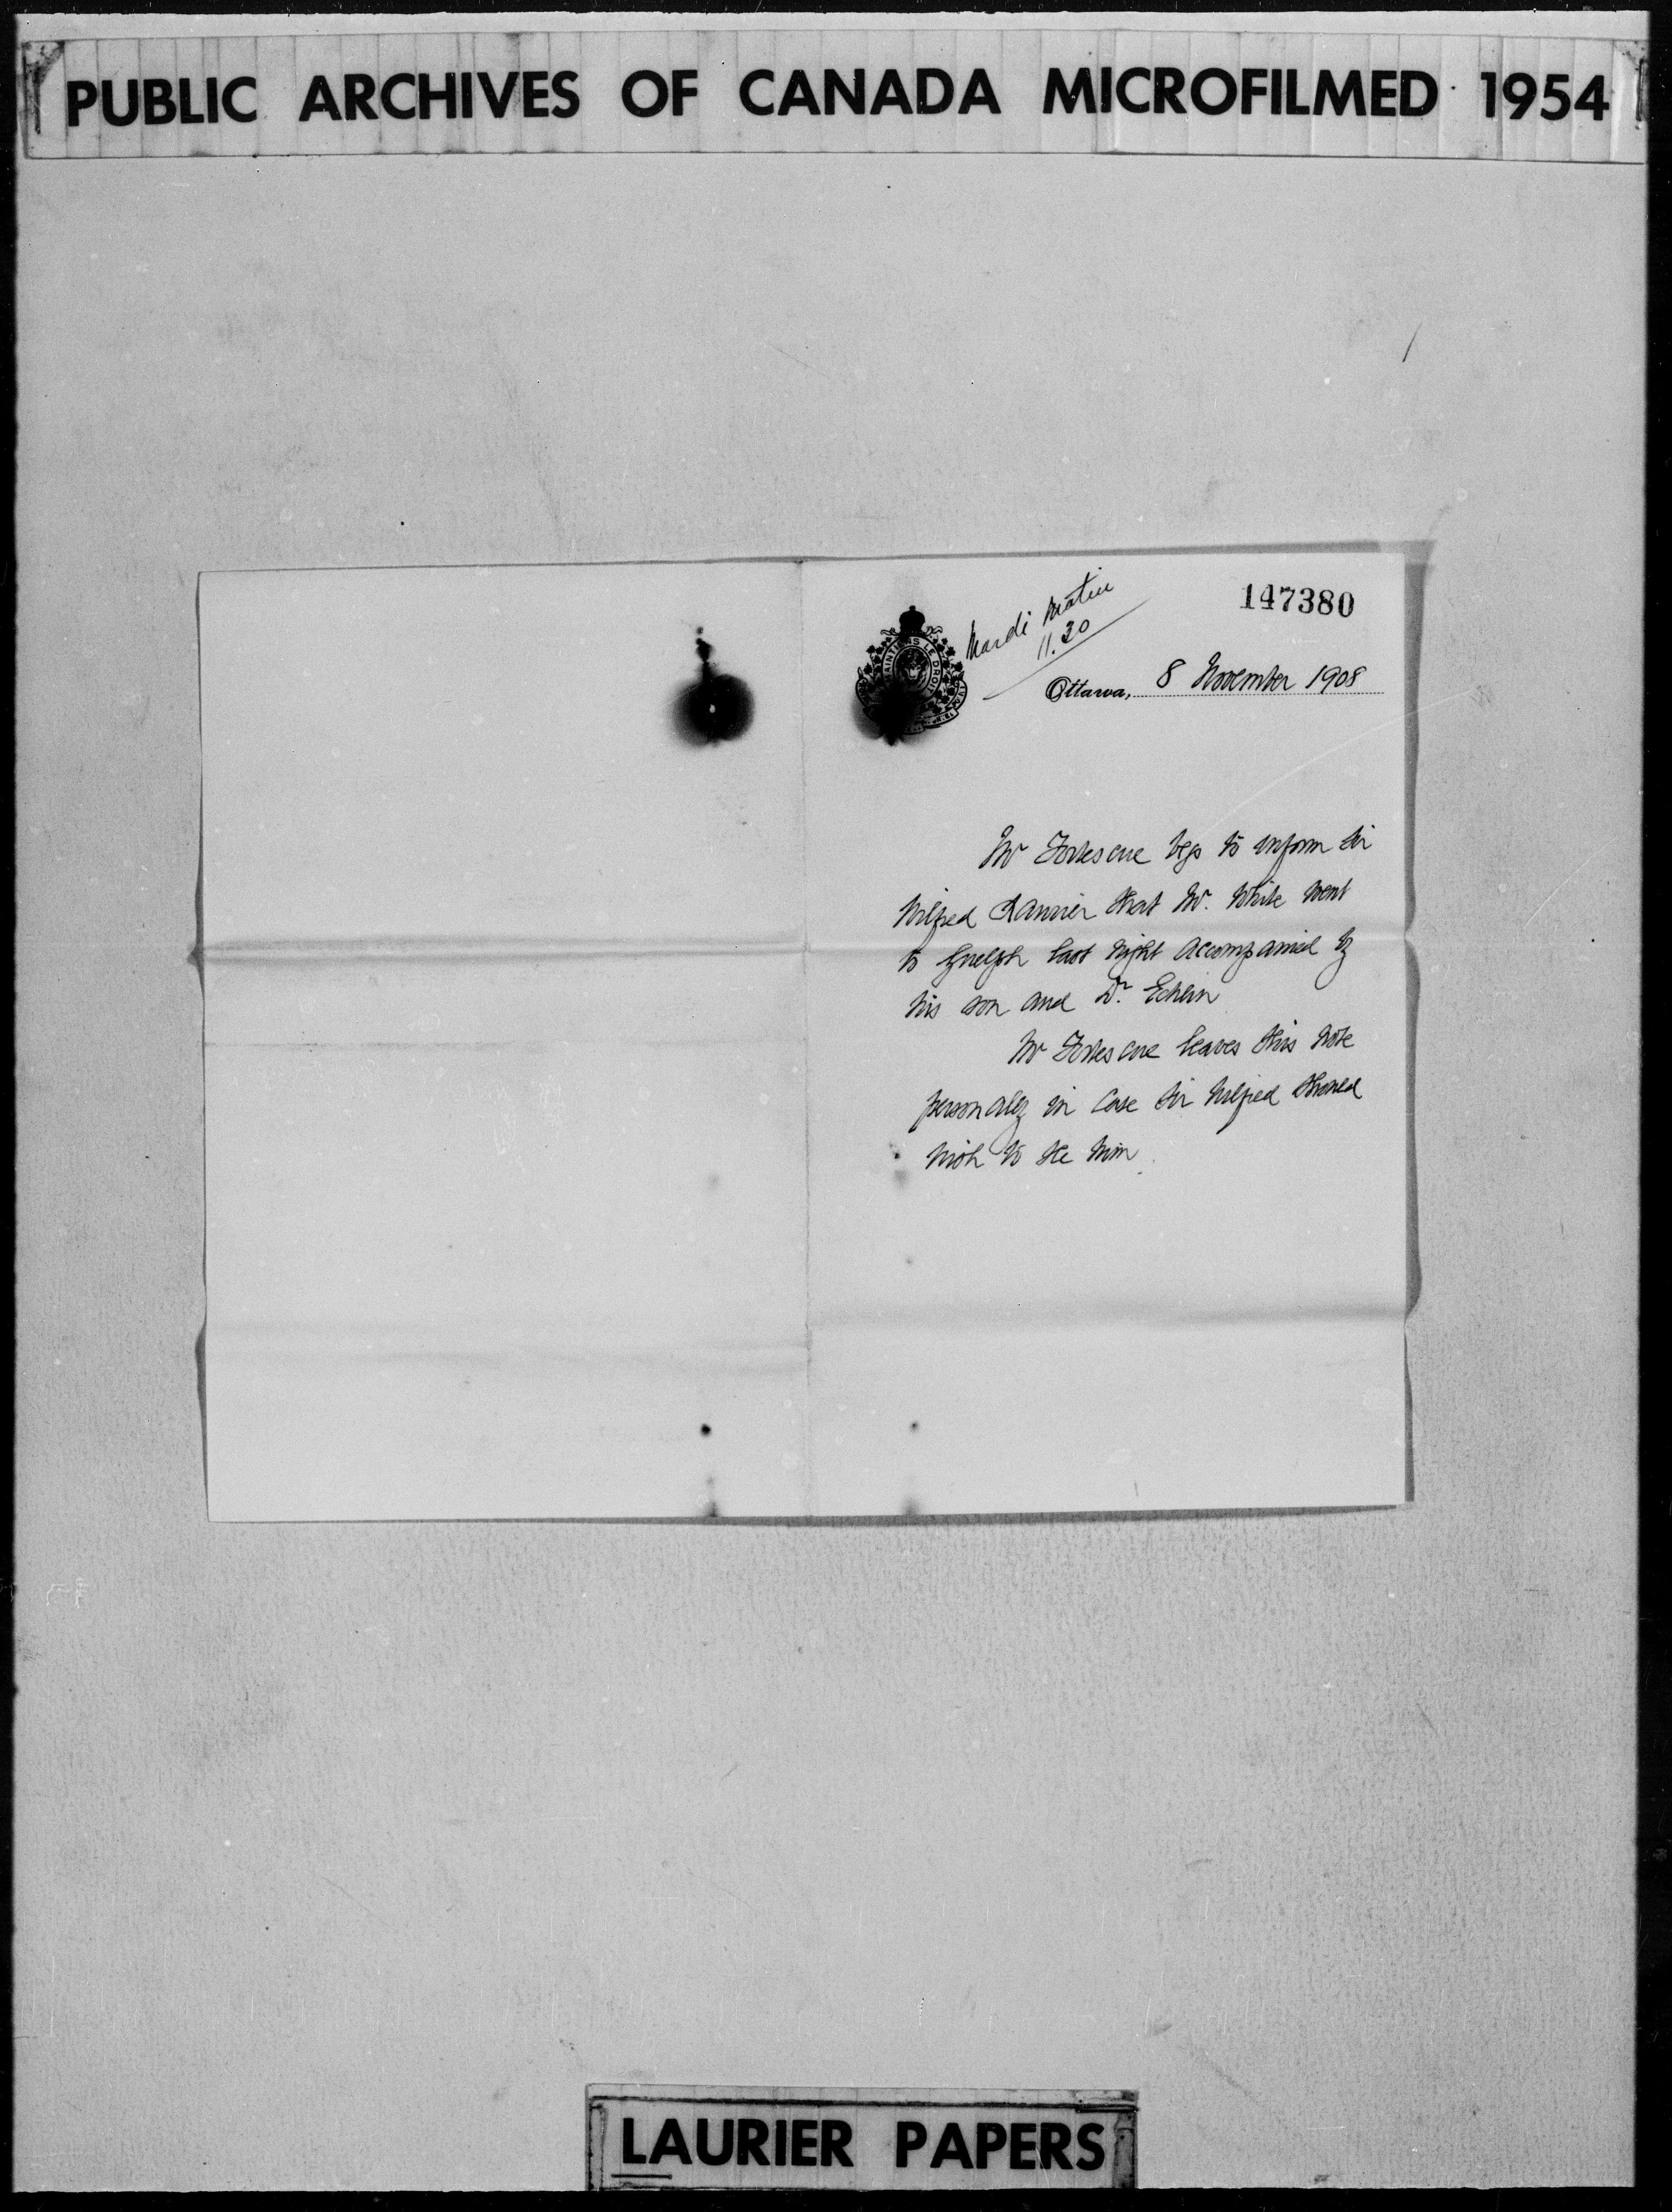 PUBLIC ARCHIVES OF CANADA MICROFILMED 1954
147380
Mardi Matin
11.30
MAINTIENS LE DROIT
Ottawa, 8 November 1908
Mr Fortescue begs to inform Sir
Wilfred Laurier that Mr. White went
to Guelph last night accompanied by
his son and Dr. Echlin
Mr Fortescue leaves this note
personally in case Sir Wilfred should
wish to see him.
LAURIER PAPERS